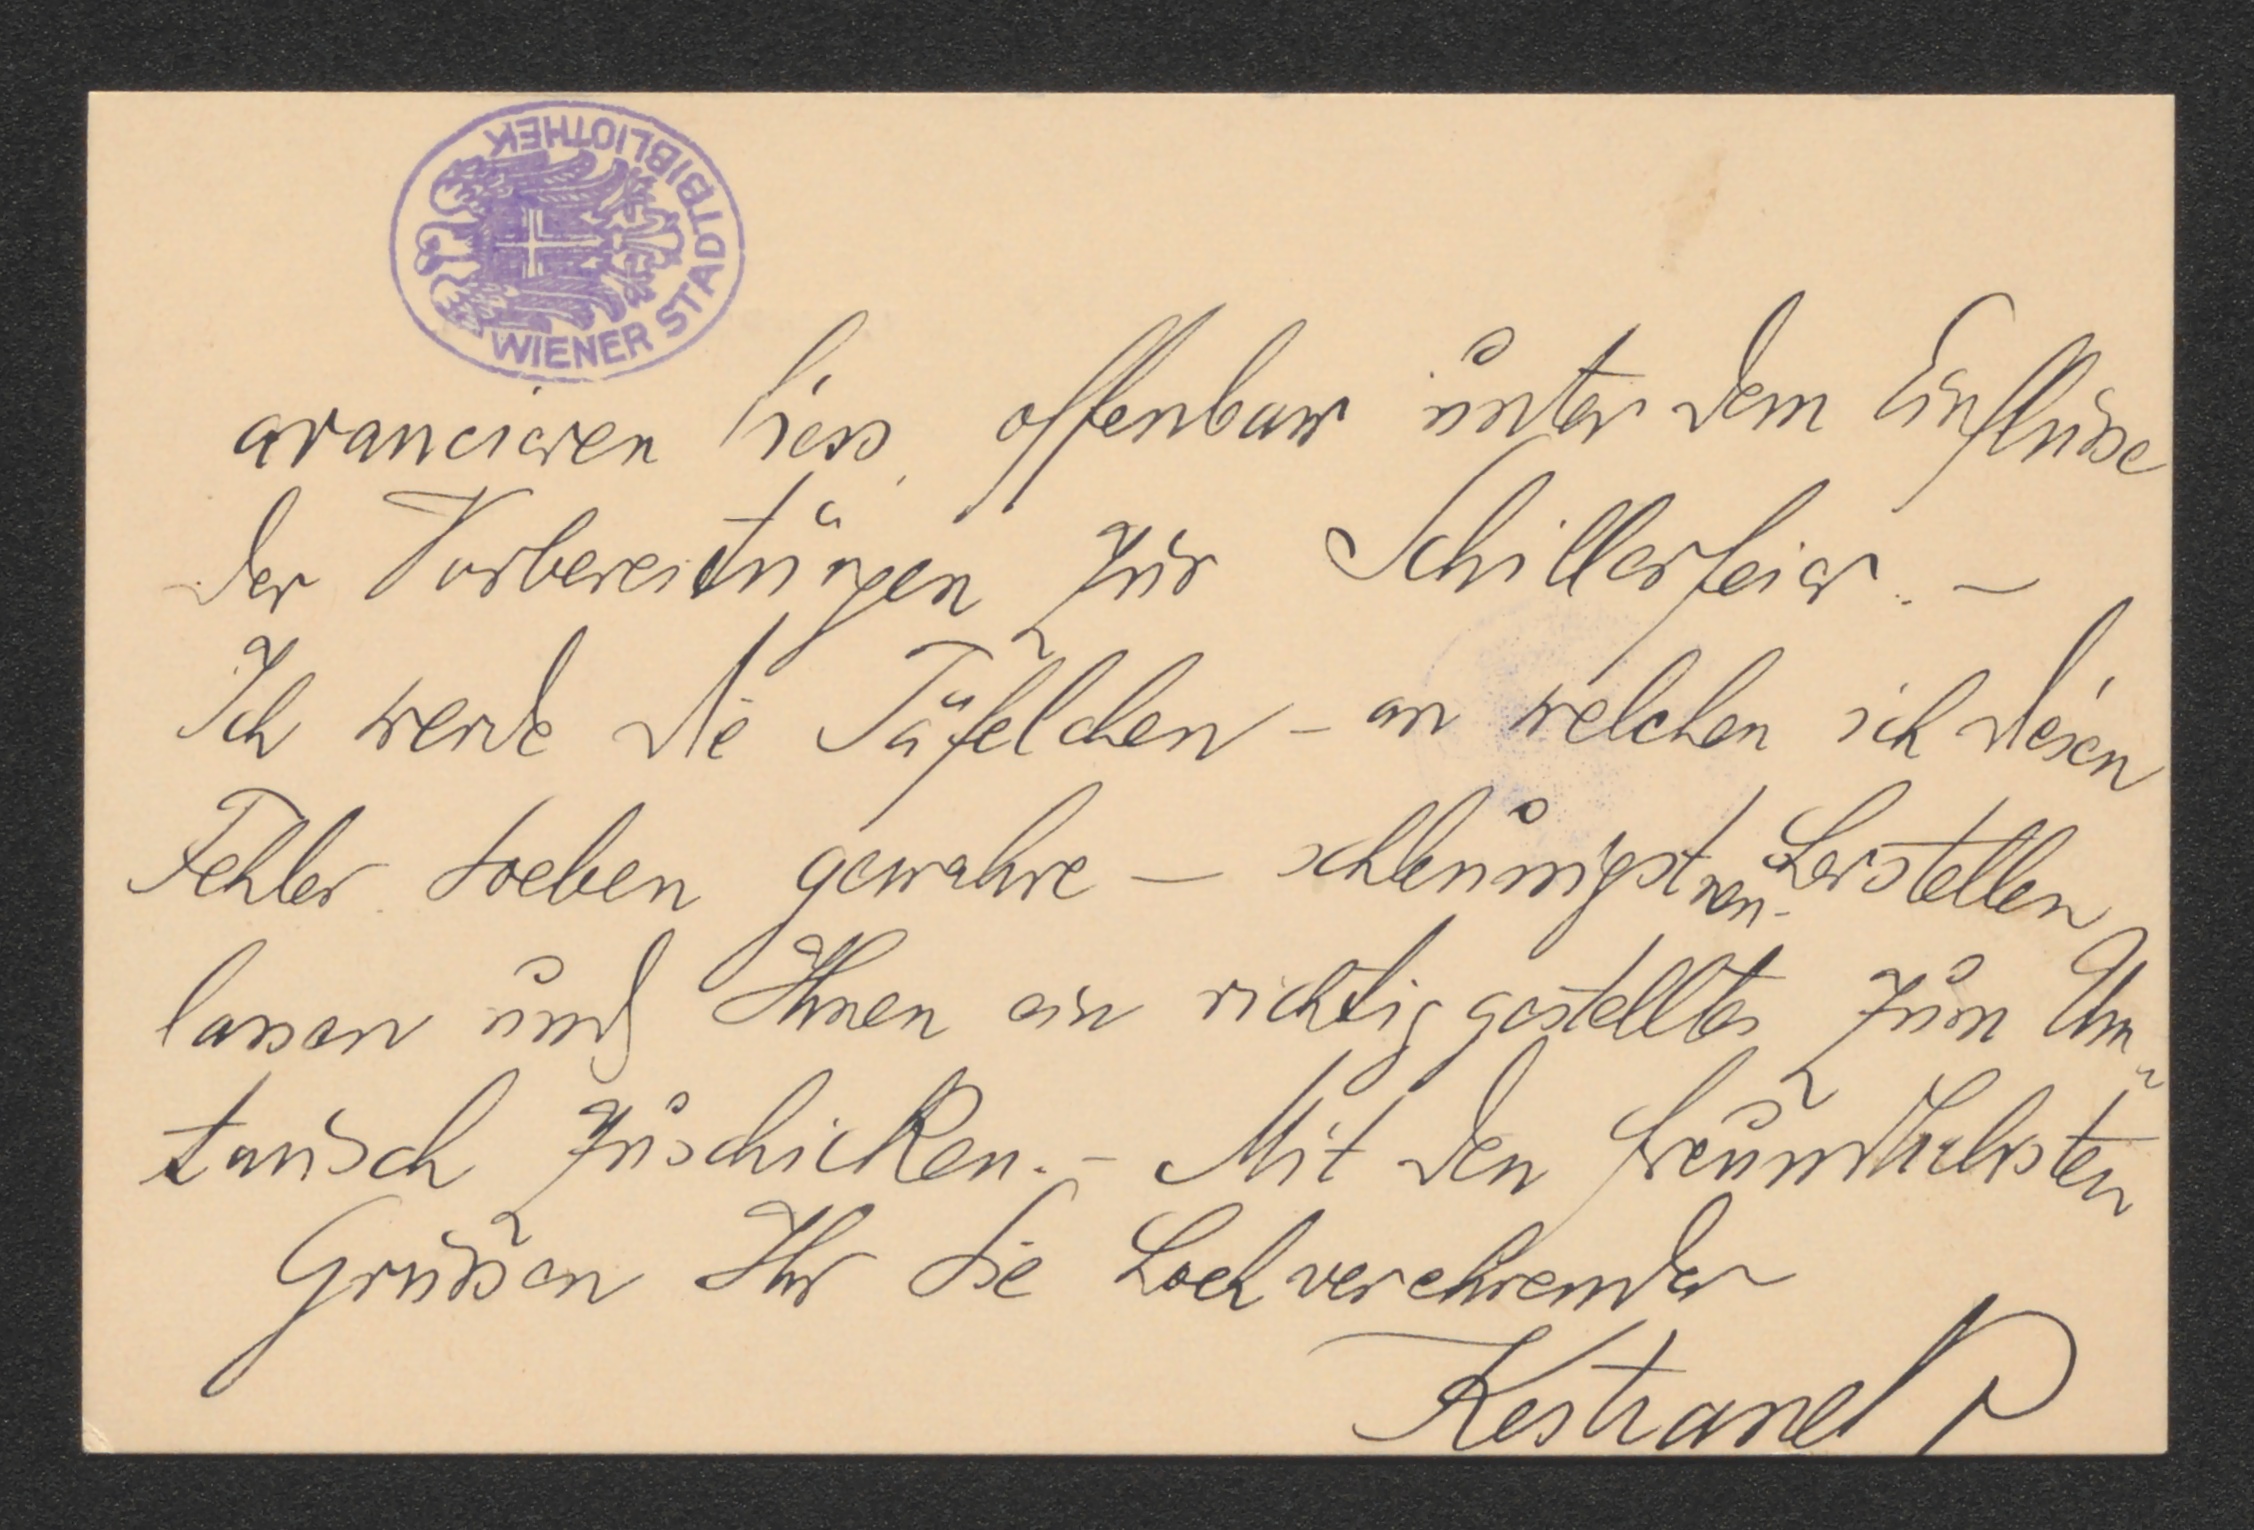 WIENER STADTBIBLIOTHEK
avancieren liess, offenbar unter dem Einflusse
der Vorbereitungen zur Schillerfeier. –
Ich werde die Täfelchen – an welchen ich diesen
Fehler soeben gewahre – schleunigst neu herstellen
lassen und Ihnen ein richtig gestelltes zum Um-
tausch zuschicken. – Mit den freundlichsten
Grüssen Ihr Sie hochverehrender
Kestranek P